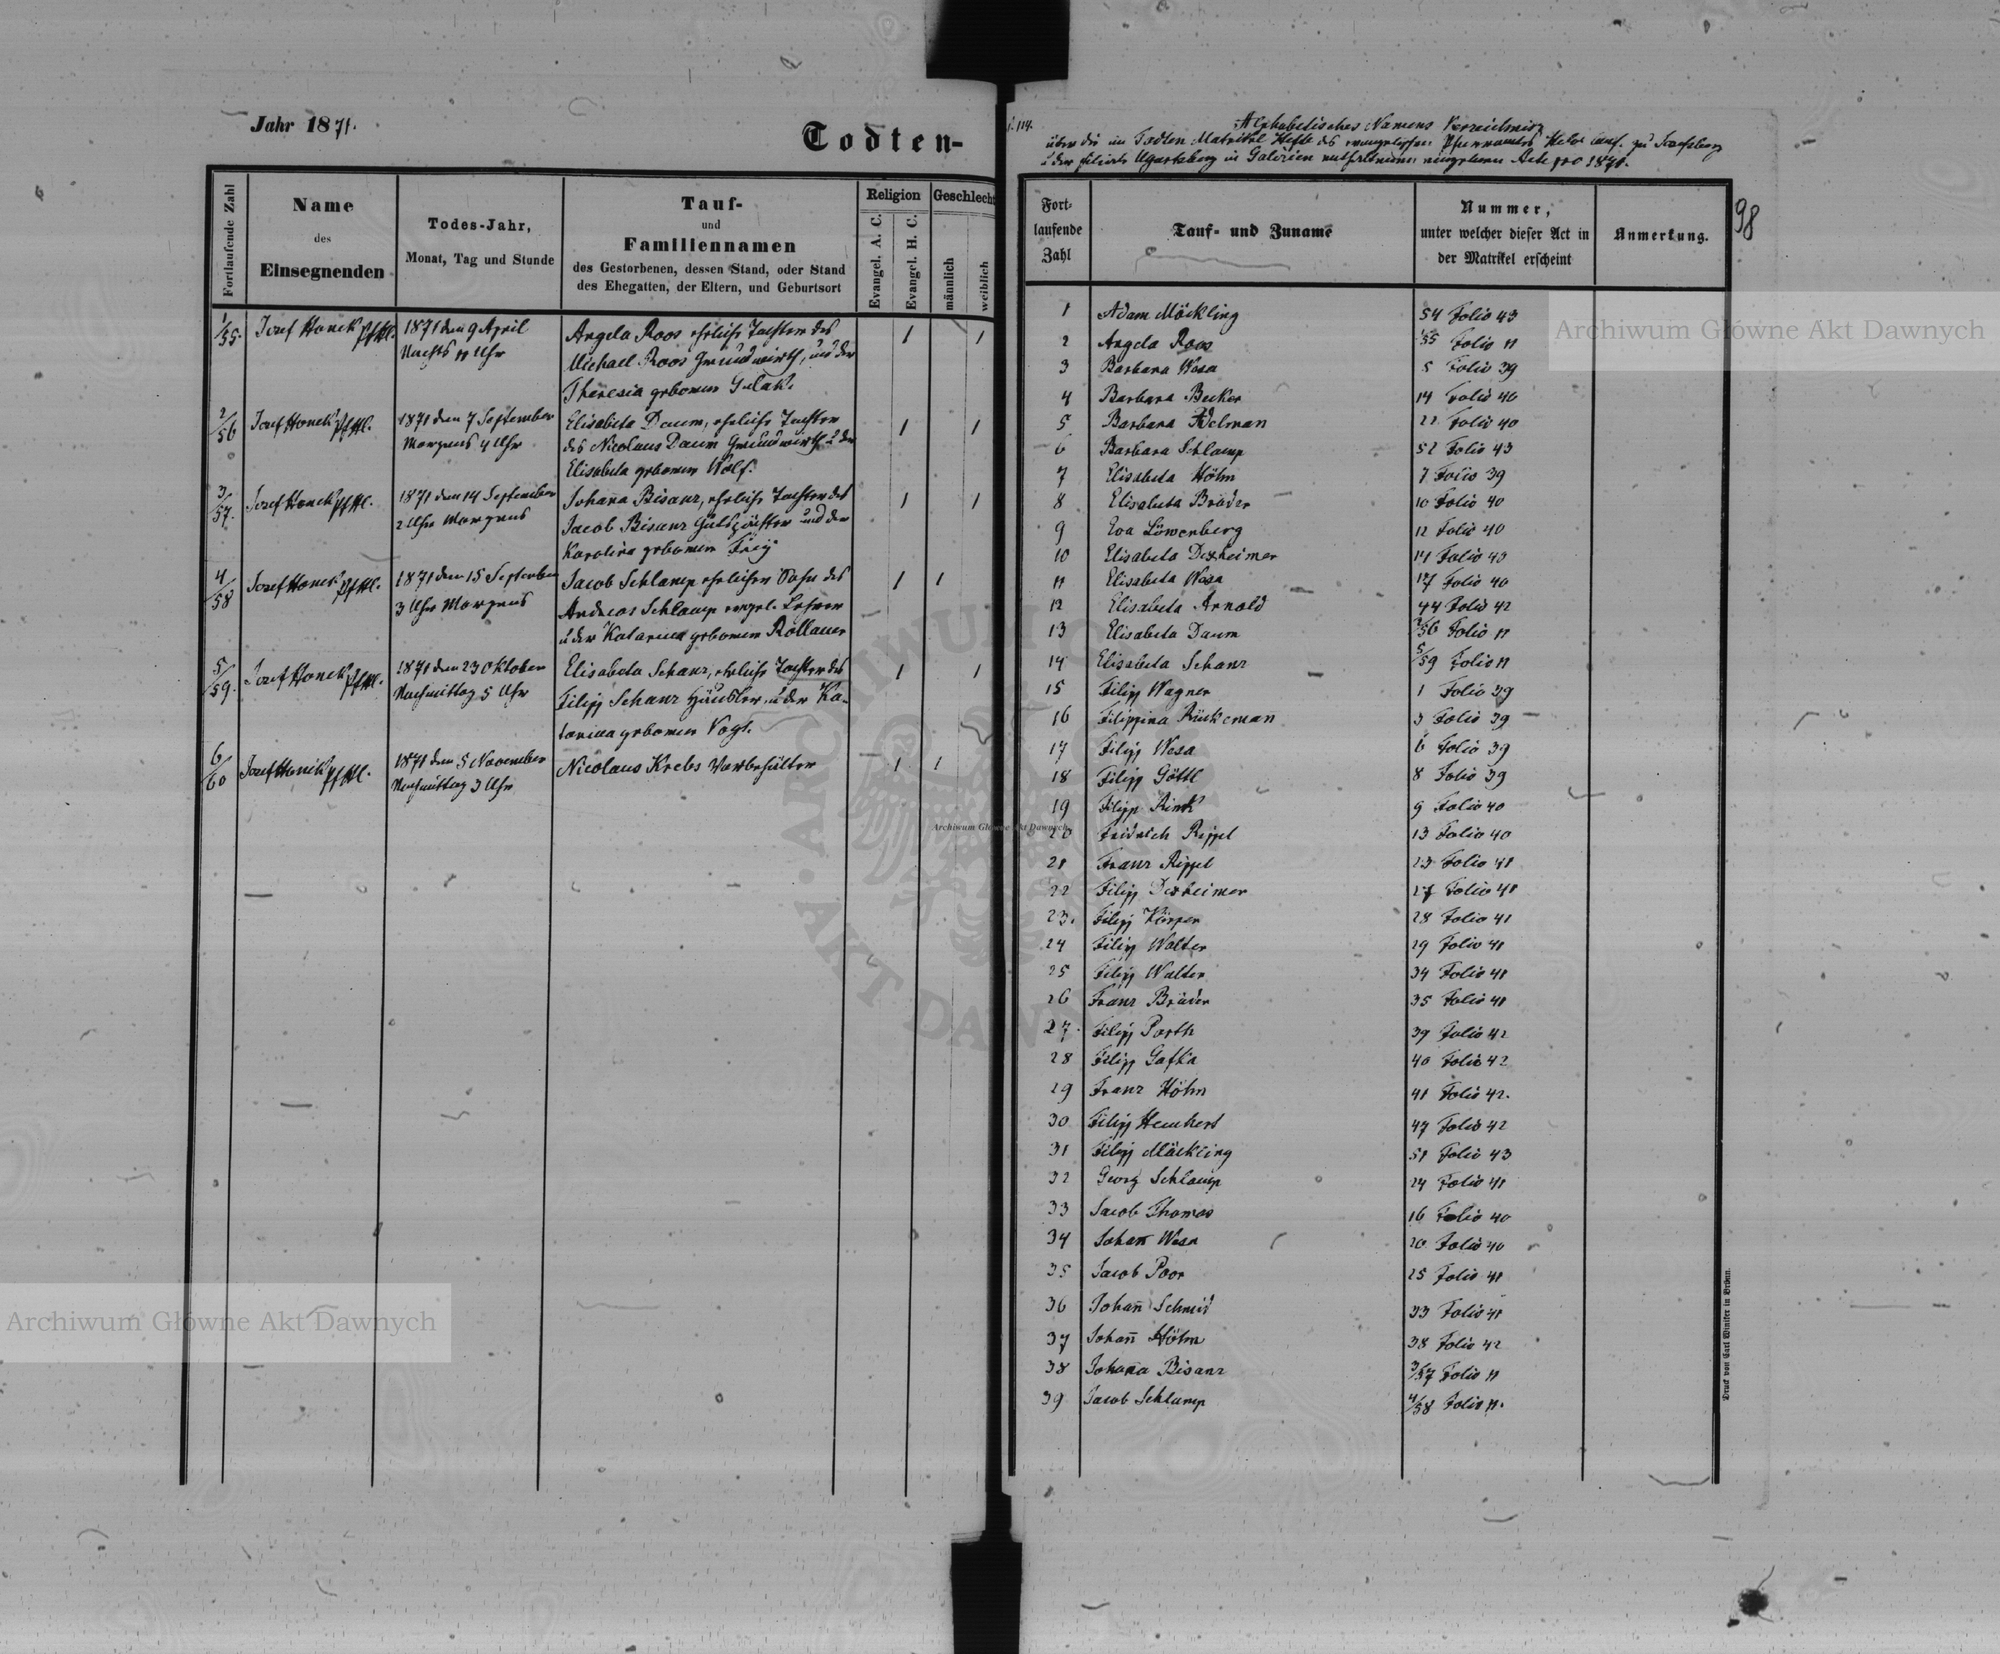 Jahr 1871.
Todten-
Fortlaufende Zahl
Name
des
Einsegnenden
Todes-Jahr,
Monat, Tag und Stunde
Tauf-
und
Familiennamen
des Gestorbenen, dessen Stand, oder Stand
des Ehegatten, der Eltern, und Geburtsort
Religion
Evangel. A. C.
Evangel. H. C.
Geschlecht
männlich
weiblich
1/55. Josef Honek 1871 den 9 April
Nachts 11 Uhr
Angela Roos eheliche Tochter des
Michael Roos Grundwirth, und der
Theresia geborenen Gulak.
1 1
2/56 Josef Honek 1871 den 7 September
Morgens 4 Uhr
Elisabeta Daum, eheliche Tochter
des Nicolaus Daum Grundwirth u der
Elisabeta geborenen Wolf.
1 1
3/57. Josef Honek 1871 den 14 September
2 Uhr Morgens
Johanna Bisanz, eheliche Tochter des
Jacob Bisanz Gutspächter und der
Karolina geborenen Frey
1 1
4/58 Josef Honek 1871 den 15 September
3 Uhr Morgens
Jacob Schlamp ehelicher Sohn des
Andreas Schlamp evngel. Lehrer
u der Katarina geborenen Rollauer
1 1
5/59. Josef Honek 1871 den 23 Oktober
Nachmittag 5 Uhr
Elisabeta Schanz, eheliche Tochter des
Filipp Schanz Häusler, u der Ka-
tarina geborenen Vogt.
1 1
6/60 Josef Honek 1871 den 5 November
Nachmittag 3 Uhr
Nicolaus Krebs Vorbehälter
1 1
S. 114.
Alphabetisches Namens Verzeichniss
über die im Todten Matrikel Hefte des evangelischen Pfarramtes Helv. Conf. zu Josefsberg
u der Filiale Ugartsberg in Galizien enthaltenen eingetragenen Acte pro 1871.
98
Fort-
laufende
Zahl
Tauf- und Zuname
Nummer,
unter welcher dieser Act in
der Matrikel erscheint
Anmerkung.
1 Adam Möckling 54 Folio 43
2 Angela Roos 1/55 Folio 11
3 Barbara Wesa 5 Folio 39
4 Barbara Becker 14 Folio 40
5 Barbara Adelman 22 Folio 40
6 Barbara Schlamp 52 Folio 43
7 Elisabeta Höhn 7 Folio 39
8 Elisabeta Bräder 10 Folio 40
9 Eva Löwenberg 12 Folio 40
10 Elisabeta Dexheimer 11 Folio 40
11 Elisabeta Wesa 17 Folio 40
12 Elisabeta Arnold 44 Folio 42
13 Elisabeta Daum 2/56 Folio 11
14 Elisabeta Schanz 5/59 Folio 11
15 Filipp Wagner 1 Folio 39
16 Filippina Rückeman 3 Folio 39
17 Filipp Wesa 6 Folio 39
18 Filipp Göttl 8 Folio 39
19 Filipp Rink 9 Folio 40
20 Fridrich Rippel 13 Folio 40
21 Franz Rippel 23 Folio 41
22 Filipp Dexheimer 27 Folio 41
23. Filipp Körper 28 Folio 41
24 Filipp Walter 29 Folio 41
25 Filipp Walter 34 Folio 41
26 Franz Bräder 35 Folio 41
27. Filipp Porth 39 Folio 42
28 Filipp Gafka 40 Folio 42
29 Franz Höhn 41 Folio 42.
30 Filipp Heuchert 47 Folio 42
31 Filipp Möckling 51 Folio 43
32 Georg Schlamp 24 Folio 41
33 Jacob Thomas 16 Folio 40
34 Johann Wesa 20 Folio 40
35 Jacob Poor 25 Folio 41
36 Johann Schmid 33 Folio 41
37 Johann Höhn 38 Folio 42
38 Johanna Bisanz 3/57 Folio 11
39 Jacob Schlamp 4/58 Folio 11.
Druck von Carl Winiker in Brünn.
Archiwum Główne Akt Dawnych
Archiwum Główne Akt Dawnych
Archiwum Główne Akt Dawnych